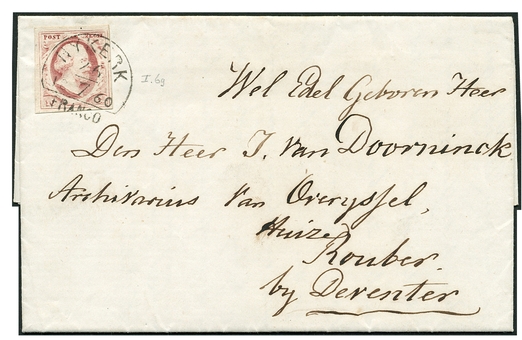 POST
NYKERK
60
FRANCO
I. 6g
Wel Edel Geboren Heer
Den Heer J. Van Doorninck
Archivarius Van Overyssel,
Huize
Rouber
by Deventer